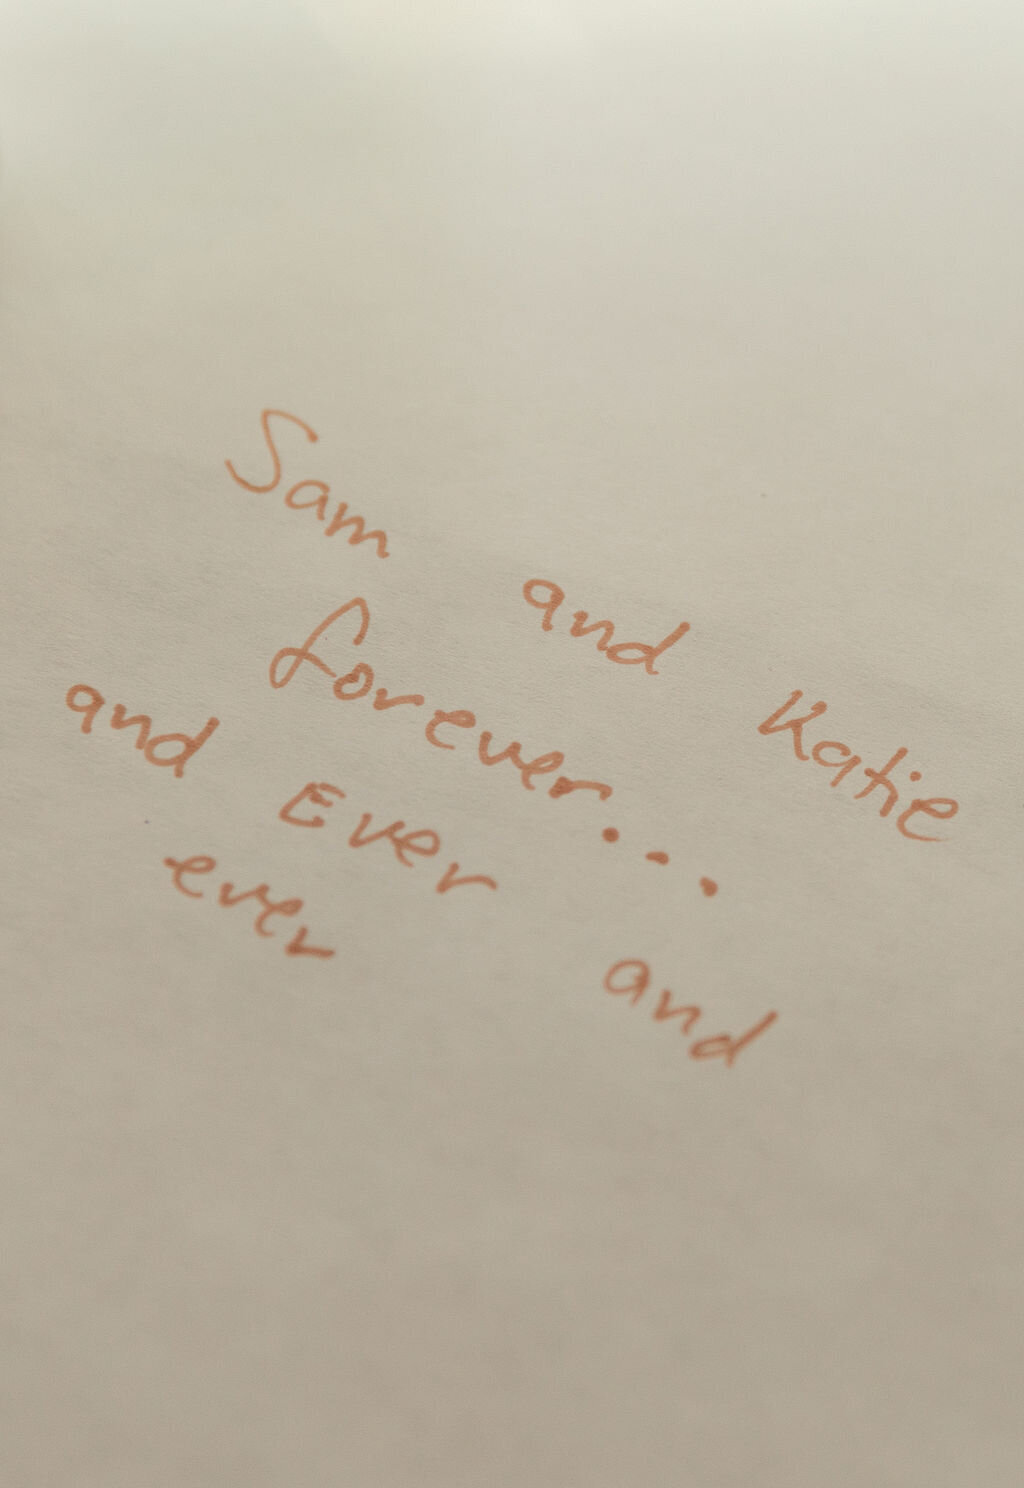 Sam and Katie
forever...
and Ever and
ever